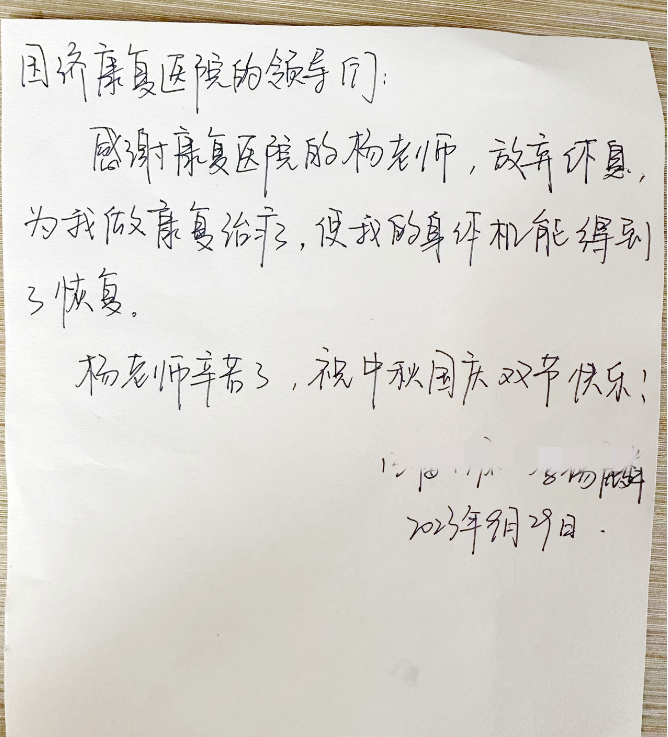 国济康复医院的领导们:
感谢康复医院的杨老师，放弃休息，
为我做康复治疗，使我的身体机能得到
了恢复。
杨老师辛苦了，祝中秋国庆双节快乐！
2023年9月29日.